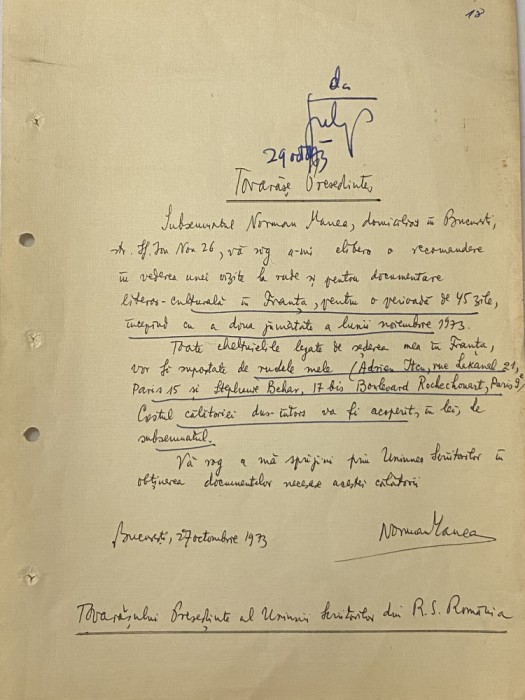 18
da
29 oct 73
Tovarășe Președinte,
Subsemnatul Norman Manea, domiciliat în București,
str. Sf. Ion Nou 26, vă rog a-mi elibera o recomandare
în vederea unei vizite la rude și pentru documentare
literar-culturală în Franța, pentru o perioadă de 45 zile,
începînd cu a doua jumătate a lunii noiembrie 1973.
Toate cheltuielile legate de șederea mea în Franța,
vor fi suportate de rudele mele (Adrien Iten, rue Lakanal 21,
Paris 15 și Stephane Behar, 17 bis Boulevard Rochechouart, Paris 9e
Costul călătoriei dus-întors va fi acoperit, în lei, de
subsemnatul.
Vă rog a mă sprijini prin Uniunea Scriitorilor în
obținerea documentelor necesare acestei călătorii
București, 27 octombrie 1973
Norman Manea
Tovarășului Președinte al Uniunii Scriitorilor din R.S. România